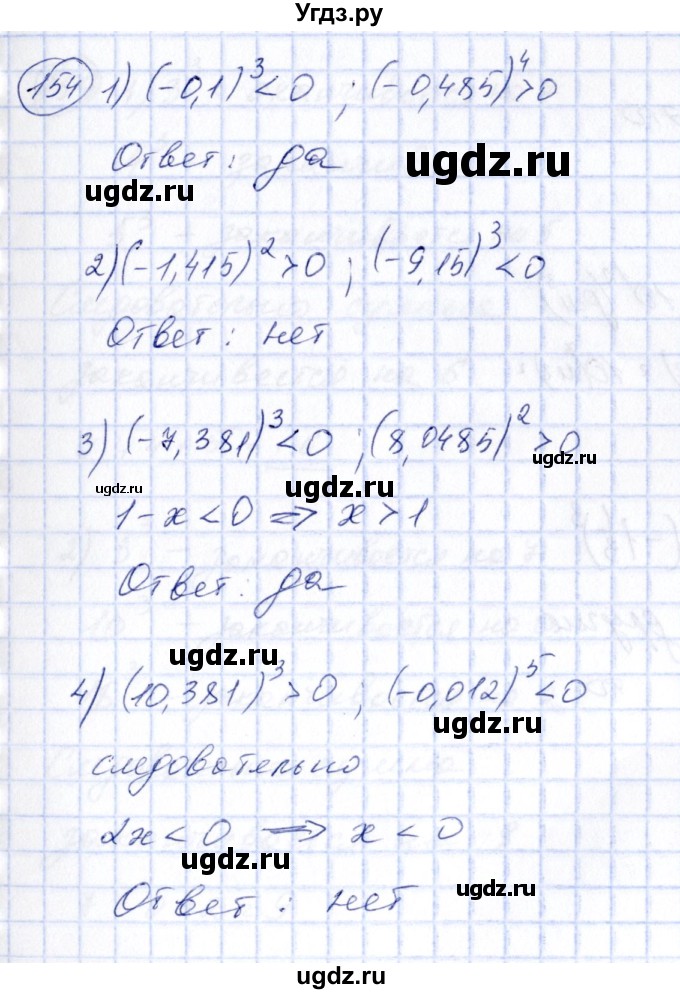 Угдз.ру
154 1) (-0,1)³<0 ; (-0,485)⁴>0
Ответ: да
ugdz.ru
ugdz.ru
2) (-1,415)²>0 ; (-9,15)³<0
Ответ: нет
3) (-7,381)³<0 ; (8,0485)²>0
ugdz.ru
ugdz.ru
ugdz.ru
1-x<0 ⇒ x>1
Ответ: да
ugdz.ru
4) (10,381)³>0 ; (-0,012)⁵<0
ugdz.ru
следовательно
2x<0 ⇒ x<0
ugdz.ru
ugdz.ru
Ответ: нет
ugdz.ru